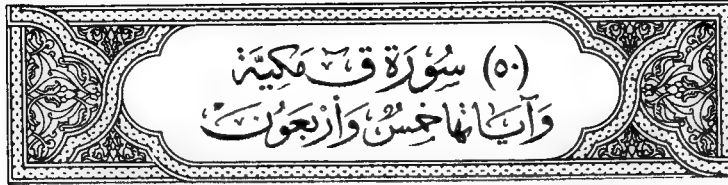 (٥٠) سُورَة ق مَكيَّة
وَآيَاتهَا خَمسٌ وَأَرْبَعُونَ